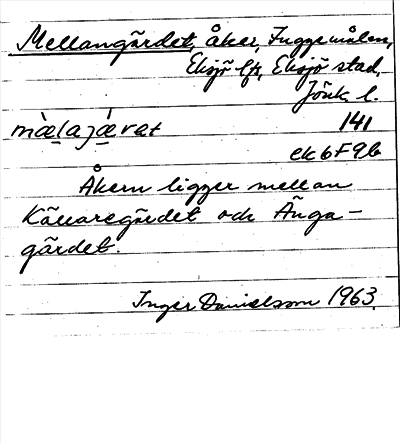 Mellangärdet, åker, Fuggemålen,
Eksjö lfs, Eksjö stad,
Jönk. l.
mæ̀lajæ̀rat 141
ek 6 F 9 b
Åkern ligger mellan
Källaregärdet och Änga-
gärdet.
Inger Danielsson 1963.